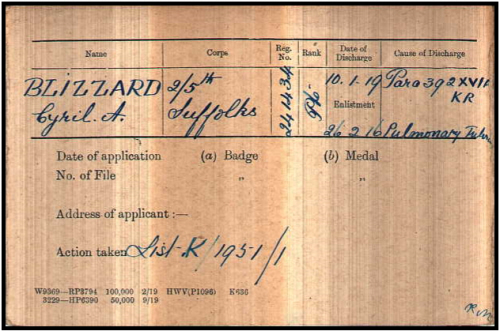 Name Corps Reg. No. Rank Date of Discharge Cause of Discharge
BLIZZARD 2/5th 241434 Pte. 10.1.19 Para 392 XVIA
Cyril. A. Suffolks Enlistment KR
26 2 16 Pulmonary
Date of application (a) Badge (b) Medal
No. of File " "
Address of applicant :—
Action taken List K/1951/1
W9369—RP3794 100,000 2/19 HWV(P1096) K636
3229—HP6390 50,000 9/19